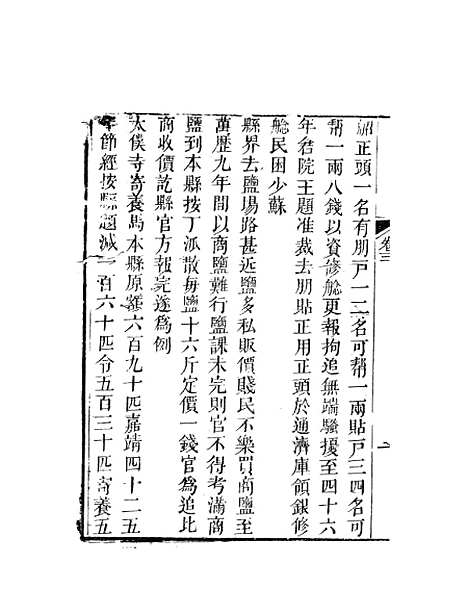 卷三
船正頭一名有朋戸一二名可幫一兩貼戸三四名可
幫一兩八錢以資修艌更報拘追無端騷擾至四十六
年荅院王題准裁去朋貼正用正頭於通濟庫領銀修
艌民困少蘇
縣界去鹽場路甚近鹽多私販價賤民不樂買商鹽至
萬歷九年間以商鹽難行鹽課未完則官不得考滿商
鹽到本縣按丁派散每鹽十六斤定價一錢官為追比
商收價訖縣官方報完遂為例
太僕寺寄養馬本縣原額六百九十匹嘉靖四十二五
年節經按縣題減一百六十匹令五百三十匹寄養五